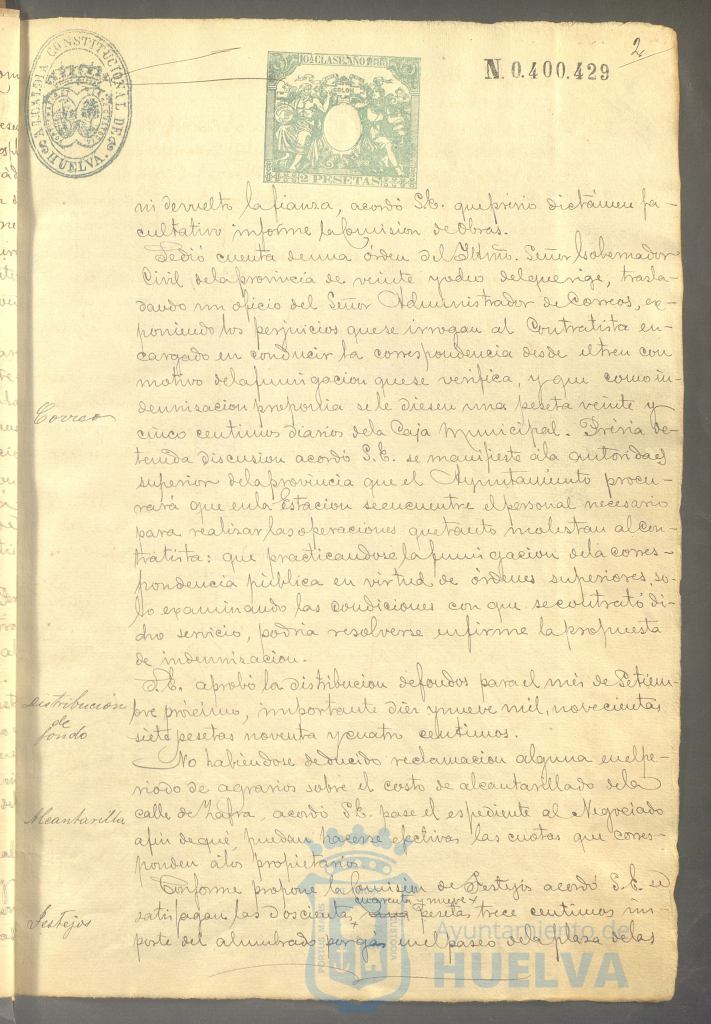 2
ALCALDIA CONSTITUCIONAL DE HUELVA.
10ª CLASE AÑO 1885
COLON
2 PESETAS
N. 0.400.429
ni devuelto la fianza, acordó S.E. que prévio dictámen fa-
cultativo informe la Comision de Obras.
Se dió cuenta de una órden del Iltmo. Señor Gobernador
Civil de la provincia de veinte y ocho del que rige, trasla-
dando un oficio del Señor Administrador de Correos, ex-
poniendo los perjuicios que se irrogan al Contratista en-
cargado en conducir la correspondencia desde el tren con
motivo de la fumigacion que se verifica, y que como in-
Correo
demnizacion proponia se le diesen una peseta veinte y
cinco centimos diarios de la Caja Municipal. Prévia de-
tenida discusion acordó S.E. se manifieste á la autoridad
superior de la provincia que el Ayuntamiento procu-
rará que en la Estacion se encuentre el personal necesario
para realizar las operaciones que tanto molestan al con-
tratista: que practicandose la fumigacion de la corres-
pondencia pública en virtud de órdenes superiores, so-
lo examinando las condiciones con que se contrató di-
cho servicio, podria resolverse en firme la propuesta
de indemnizacion.
Distribución
de
fondo
S.E. aprobó la distribucion de fondos para el mes de Setiem-
bre próximo, importante diez y nueve mil, novecientas
siete pesetas noventa y cuatro centimos.
No habiéndose deducido reclamacion alguna en el pe-
riodo de agravios sobre el costo de alcantarillado de la
Alcantarilla
calle de Zafra, acordó S.E. pase el espediente al Negociado
afin de que puedan hacerse efectivas las cuotas que corres-
ponden á los propietarios.
Festejos
Conforme propone la Comision de Festejos acordó S.E. se
cuarenta y nueve
satisfagan las doscientas pesetas trece centimos im-
porte del alumbrado por gas en el paseo de la plaza de las
PORTUS MARIS
Ayuntamiento de
HUELVA